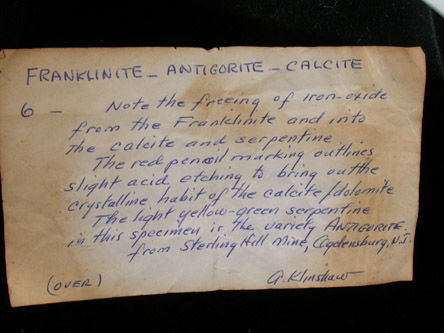 FRANKLINITE - ANTIGORITE - CALCITE
6 - Note the freeing of iron-oxide
from the Franklinite and into
the calcite and serpentine
The red pencil marking outlines
slight acid etching to bring out the
crystalline habit of the calcite/dolomite
The light yellow-green serpentine
in this specimen is the variety ANTIGORITE.
from Sterling Hill Mine, Ogdensburg, N.J.
(OVER) A. Klinshaw